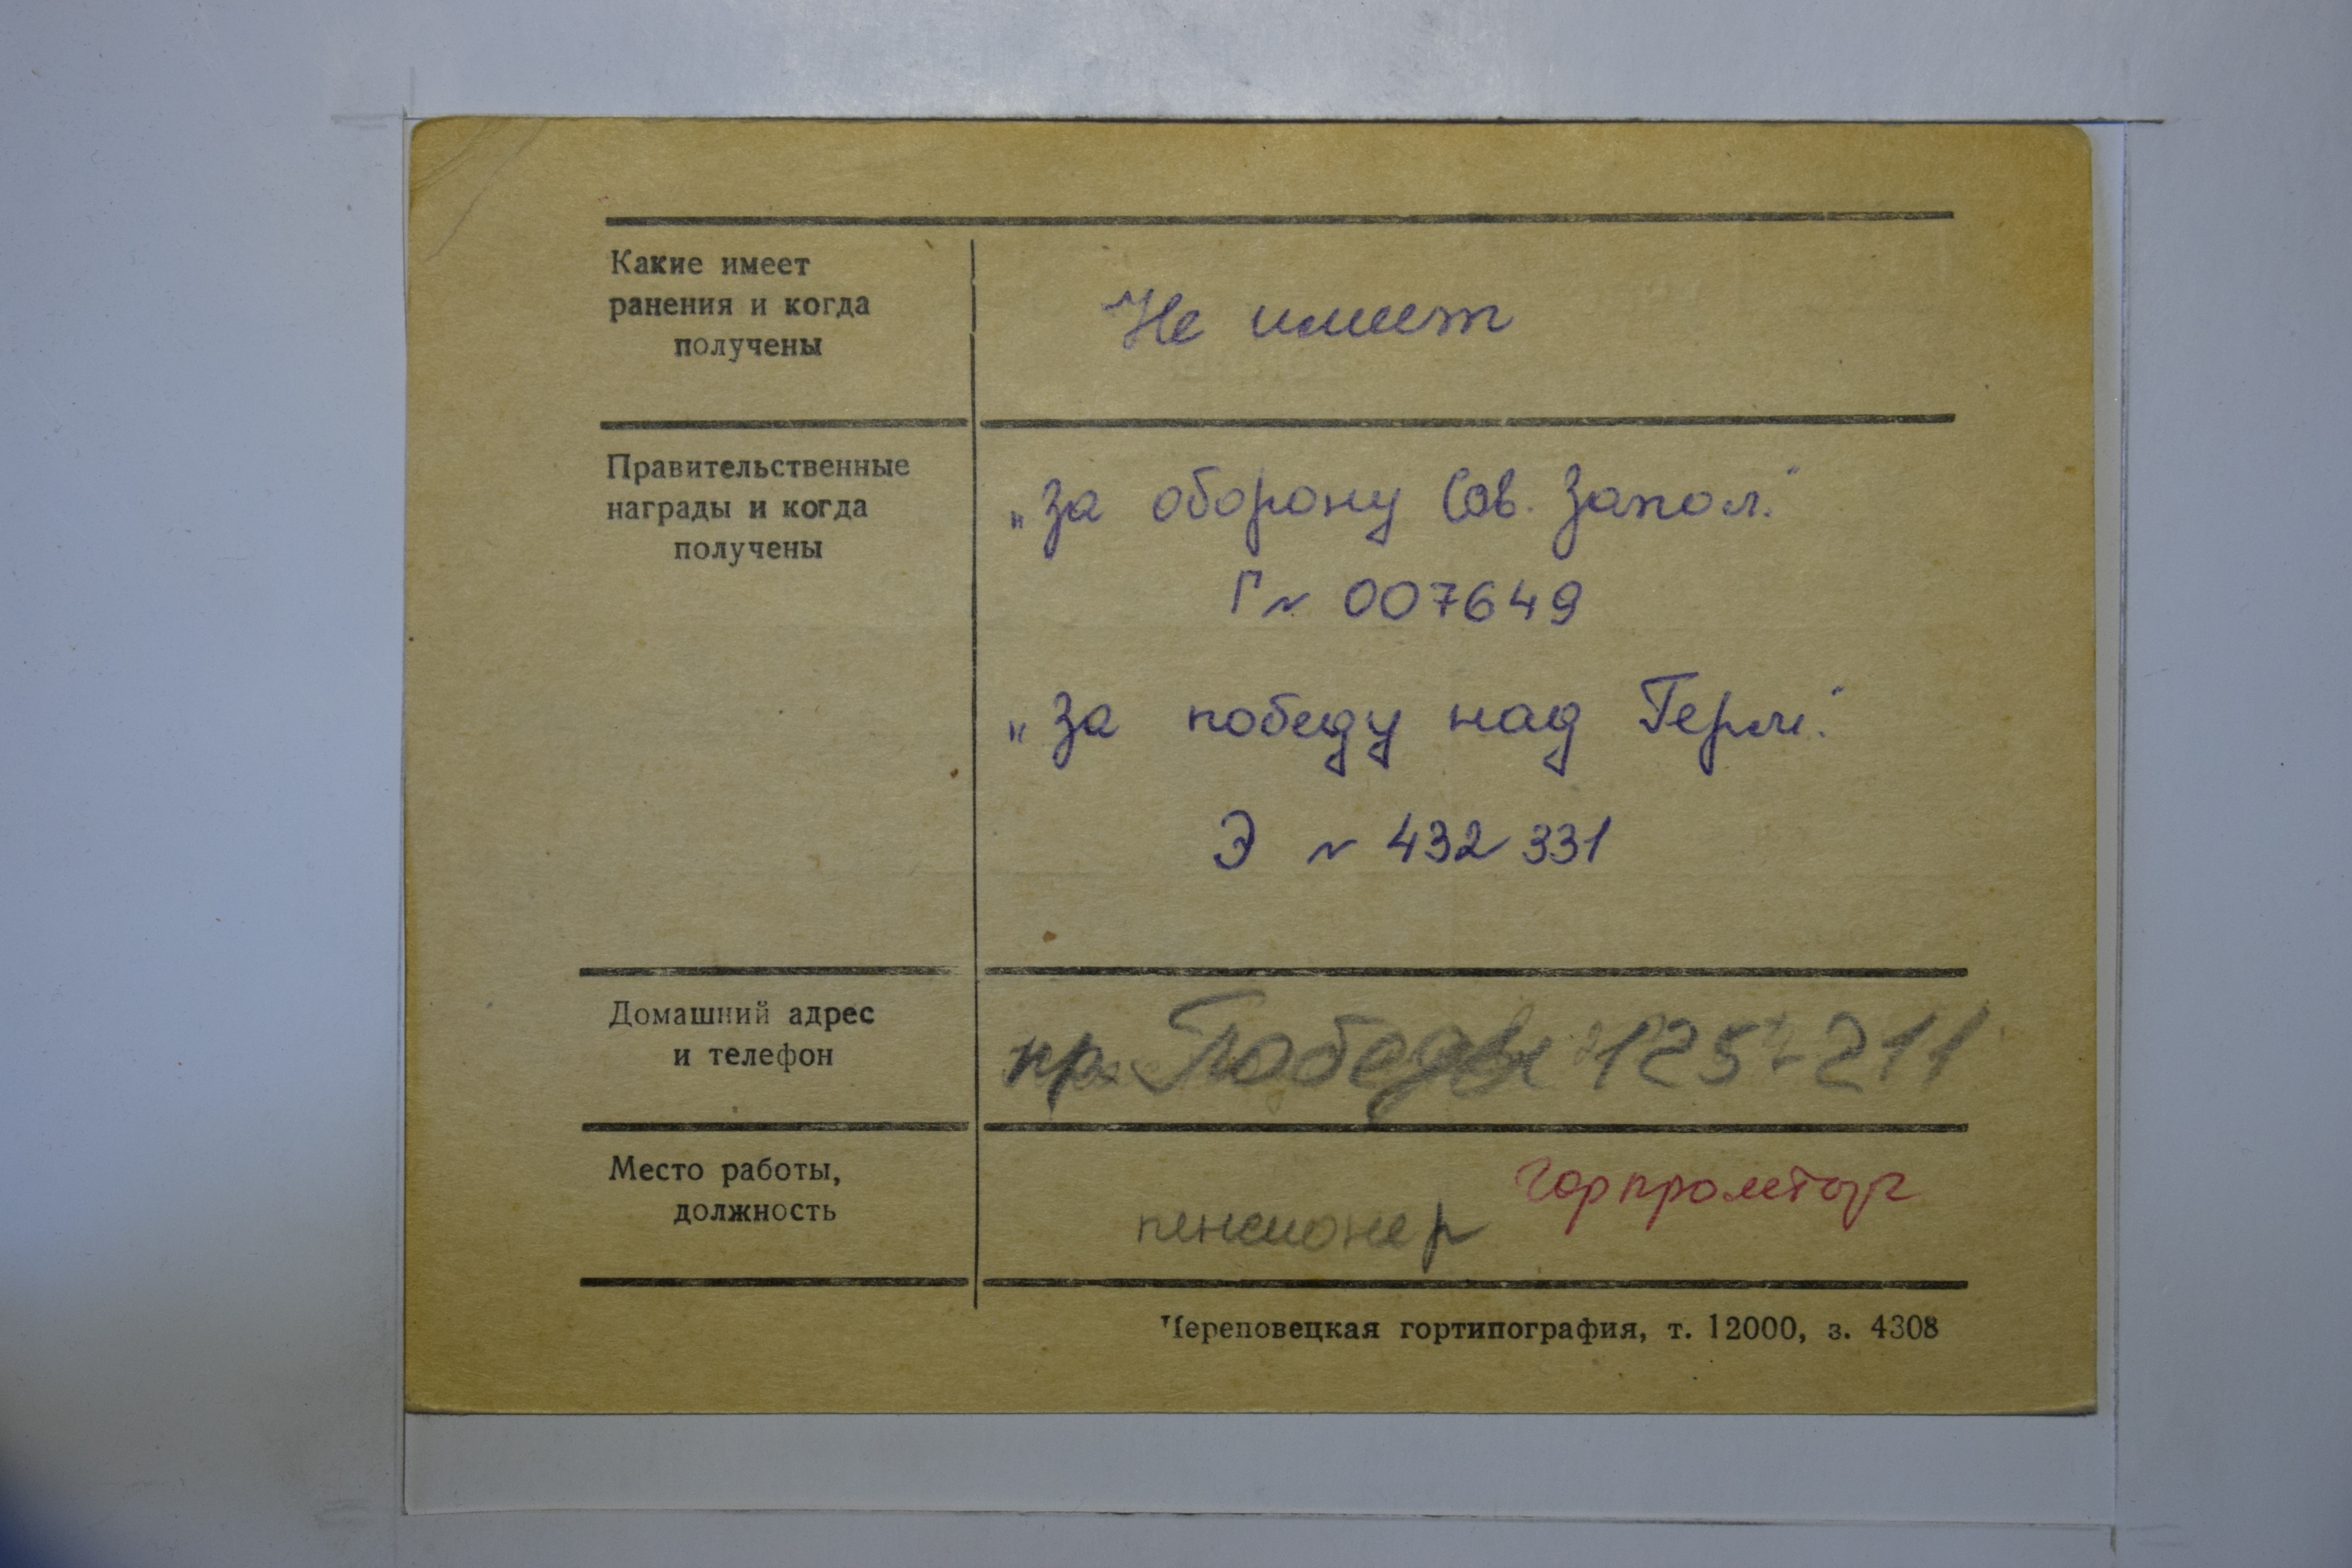 Какие имеет
ранения и когда
получены
Не имеет
Правительственные
награды и когда
получены
„За оборону Сов. Запол."
Г № 007649
„За победу над Герм."
Э № 432331
Домашний адрес
и телефон
пр. Победы 125-211
Место работы,
должность
Горпромторг
пенсионер
Череповецкая гортипография, т. 12000, з. 4308